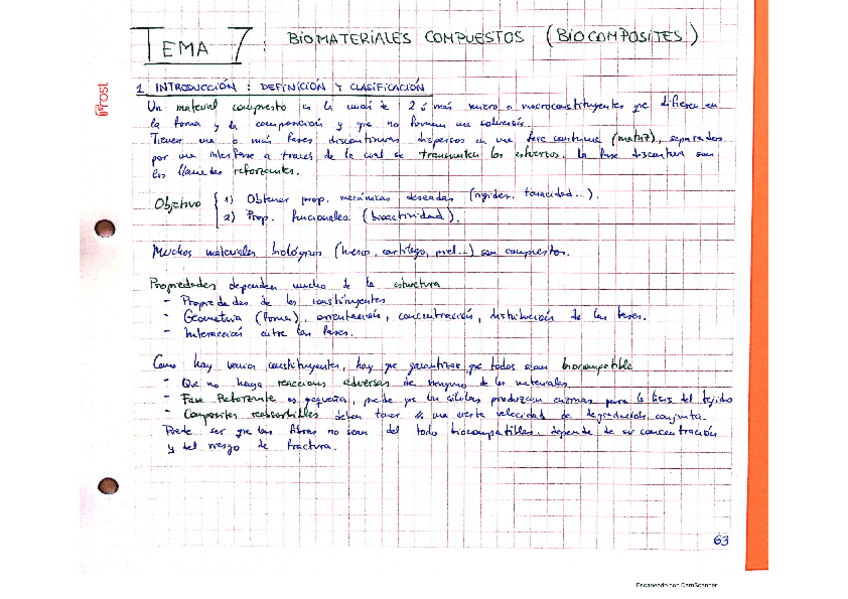 TEMA 7: BIOMATERIALES COMPUESTOS (BIOCOMPOSITES)
1. INTRODUCCIÓN: DEFINICIÓN Y CLASIFICACIÓN
Prost
Un material compuesto es la unión de 2 ó más micro o macroconstituyentes que difieren en
la forma y la composición y que no forman una solución.
Tienen una o más fases discontinuas dispersas en una fase continua (matriz), separadas
por una interfase a través de la cual se transmiten los esfuerzos. La fase discontinua son
los llamados reforzantes.
Objetivo 1) Obtener prop. mecánicas deseadas (rigidez, tenacidad...).
2) Prop. funcionales (bioactividad).
Muchos materiales biológicos (hueso, cartílago, piel...) son compuestos.
Propiedades dependen mucho de la estructura
- Propiedades de los constituyentes
- Geometría (forma), orientación, concentración, distribución de las fases.
- Interacción entre las fases.
Como hay varios constituyentes, hay que garantizar que todos sean biocompatible
- Que no haya reacciones adversas de ninguno de los materiales.
- Fase Reforzante es pequeña, puede que las células produzcan enzimas para la lisis del tejido
- Composites reabsorbibles deben tener una cierta velocidad de degradación conjunta.
Puede ser que las fibras no sean del todo biocompatibles, depende de su concentración
y del riesgo de fractura.
63
Escaneado con CamScanner